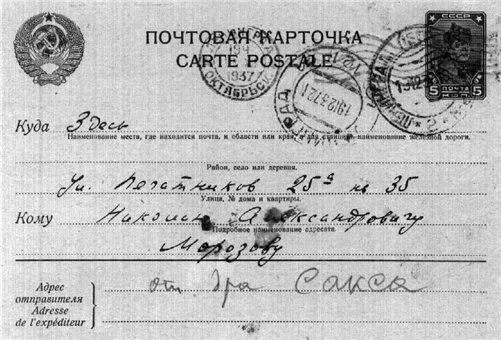 ПОЧТОВАЯ КАРТОЧКА
CARTE POSTALE
СССР
5 ПОЧТА 5
1937
ОКТЯБРЬСК.
Куда Здесь
Наименование места, где находится почта, и области или края, а для станций наименование железной дороги.
Район, село или деревня.
Ул. Печатников 25а кв 35
Улица, № дома и квартиры.
Кому Николаю Александровичу
Подробное наименование адресата.
Морозову
Адрес
отправителя
Adresse
de l'expéditeur
от дра Сакса